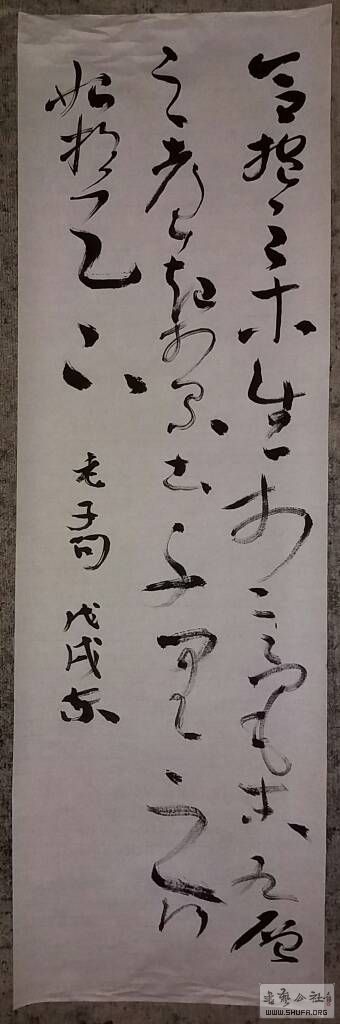 合抱之木生於毫末九層
之臺起於累土千里之行
始於足下
老子句 戊戌
书艺公社
WWW.SHUFA.ORG